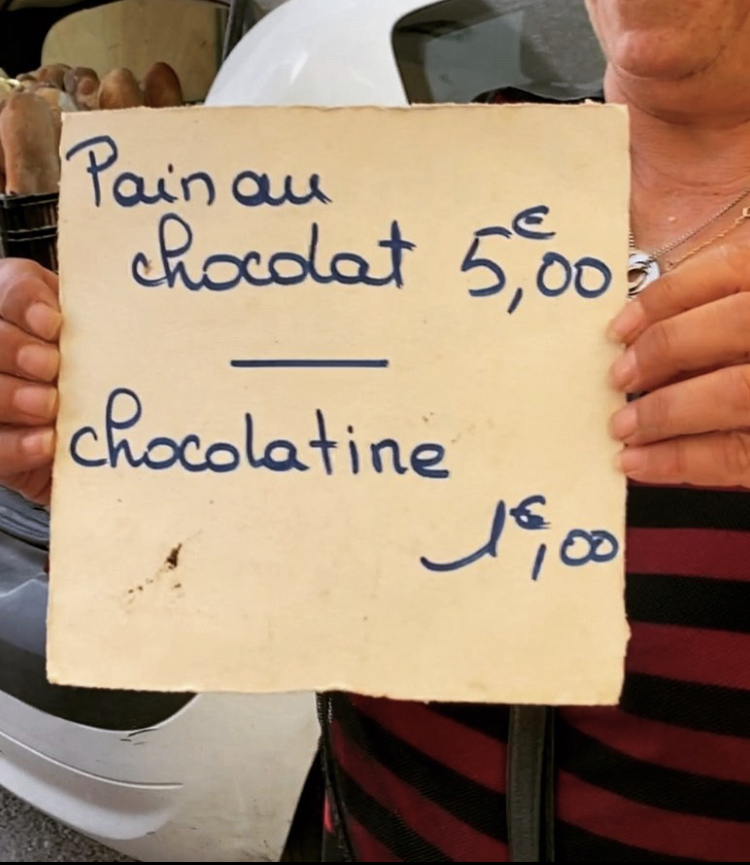 Pain au
chocolat 5,00€
chocolatine
1€,00